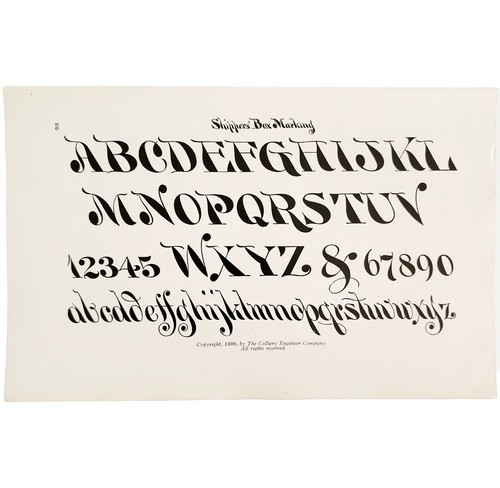 Shippers' Box Marking
ABCDEFGHIJKL
MNOPQRSTUV
12345 WXYZ & 67890
abcddeffghijklmnopqrstuvwxyz
Copyright, 1899, by The Colliery Engineer Company
All rights reserved